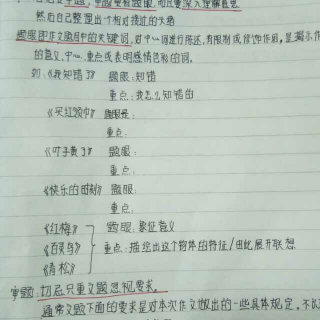 然后自己整理出个相对接近的大纲
题眼即作文题目中的关键词,对中心词进行陈述,有限制或修饰作用,是揭示作
的意义、中心、重点或表明感情色彩的词。
如:《我知错了》 题眼:知错
重点:我怎么知错的
《买红领巾》 题眼是:
重点:
《叶子黄了》 题眼:
重点:
《快乐的时刻》 题眼:
重点:
《红梅》 题眼:象征意义
《百灵鸟》 重点:描绘出这个物体的特征/由此展开联想
《青松》
审题:切忌只重文题忽视要求。
通常文题下面的要求是对本次作文做出的一些具体规定,不以